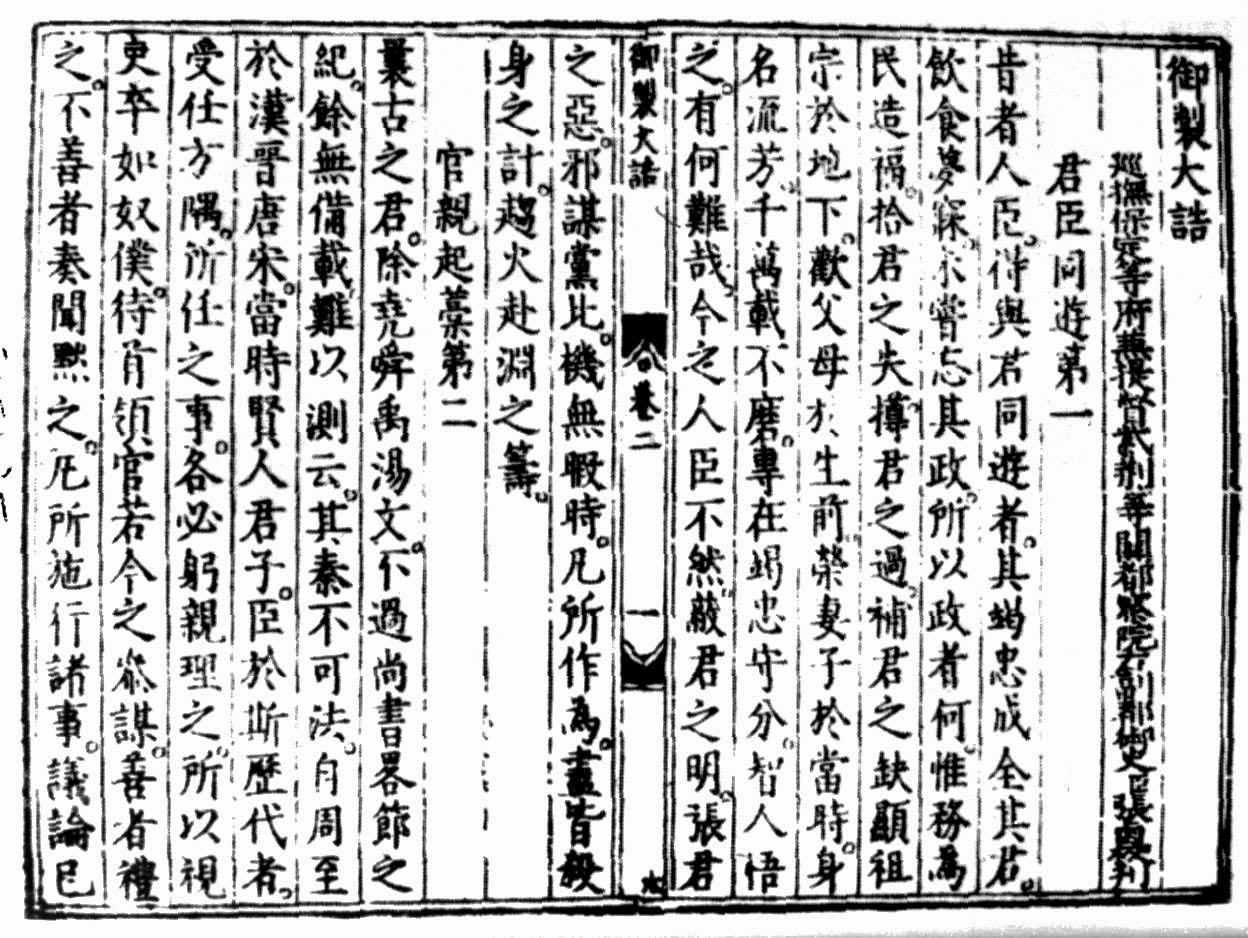 御製大誥
巡撫保定等府兼提督紫荆等關都察院右副都御史臣張
君臣同遊第一
昔者人臣得與君同遊者其竭忠成全其君
飲食夢寐未嘗忘其政所以政者何惟務爲
民造福拾君之失撙君之過補君之缺顯祖
宗於地下歡父母於生前榮妻子於當時身
名流芳千萬載不磨專在竭忠守分智人悟
之有何難哉今之人臣不然蔽君之明張君
御製大誥 卷二 一
之惡邪謀黨比機無暇時凡所作爲盡皆殺
身之計趨火赴淵之籌
官親起藁第二
曩古之君除堯舜禹湯文不過尚書畧節之
紀餘無備載難以測云其秦不可法自周至
於漢晉唐宋當時賢人君子臣於斯歷代者
受任方隅所任之事各必躬親理之所以視
吏卒如奴僕待首領官若今之叅謀善者禮
之不善者奏聞黙之凡所施行諸事議論已